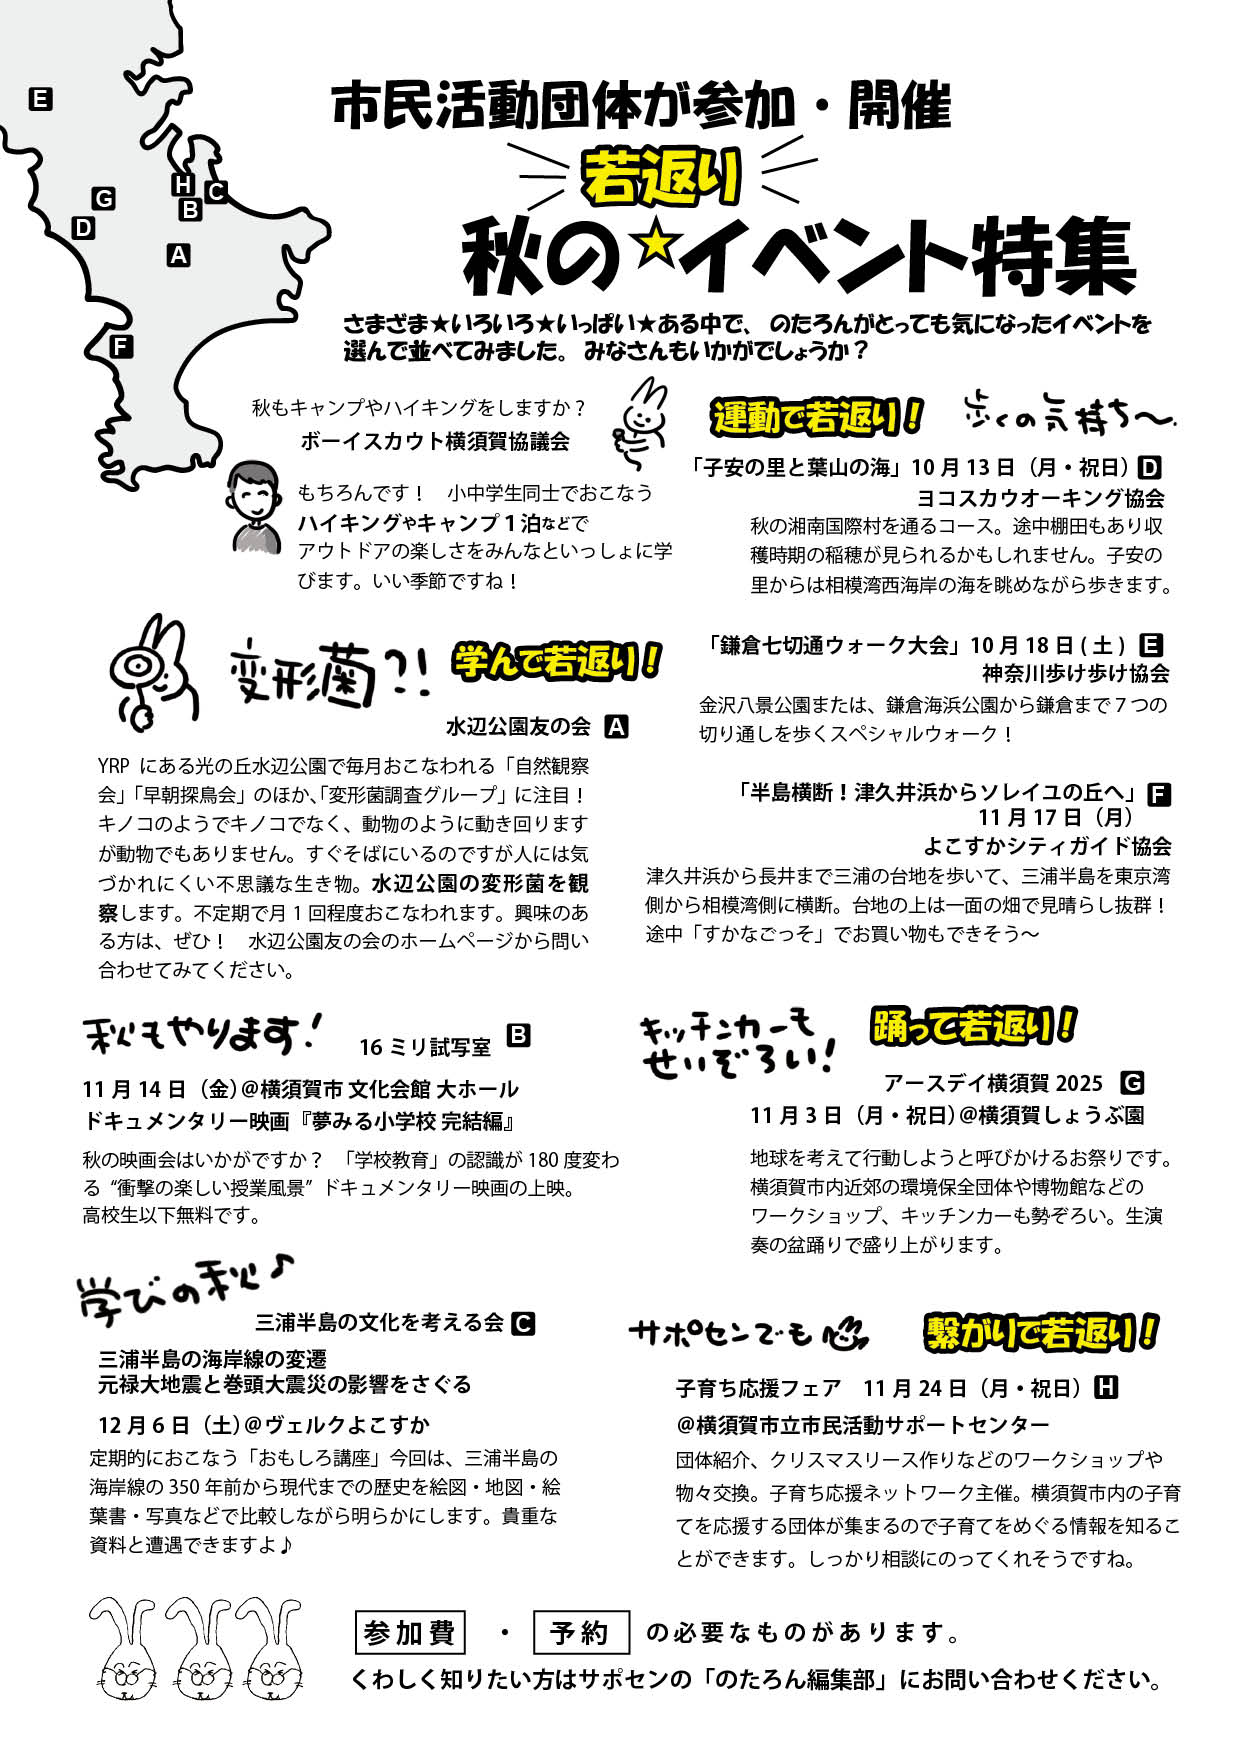 E
G
D
H
C
B
A
F
市民活動団体が参加・開催
若返り
秋の★イベント特集
さまざま★いろいろ★いっぱい★ある中で、のたろんがとっても気になったイベントを
選んで並べてみました。みなさんもいかがでしょうか？
秋もキャンプやハイキングをしますか？
ボーイスカウト横須賀協議会
もちろんです！　小中学生同士でおこなう
ハイキングやキャンプ1泊などで
アウトドアの楽しさをみんなといっしょに学
びます。いい季節ですね！
変形菌?!
学んで若返り！
水辺公園友の会 A
YRP にある光の丘水辺公園で毎月おこなわれる「自然観察
会」「早朝探鳥会」のほか、「変形菌調査グループ」に注目！
キノコのようでキノコでなく、動物のように動き回ります
が動物でもありません。すぐそばにいるのですが人には気
づかれにくい不思議な生き物。水辺公園の変形菌を観
察します。不定期で月1回程度おこなわれます。興味のあ
る方は、ぜひ！　水辺公園友の会のホームページから問い
合わせてみてください。
秋もやります！
16ミリ試写室 B
11月14日（金）@横須賀市文化会館 大ホール
ドキュメンタリー映画『夢みる小学校 完結編』
秋の映画会はいかがですか？　「学校教育」の認識が180度変わ
る“衝撃の楽しい授業風景”ドキュメンタリー映画の上映。
高校生以下無料です。
学びの秋♪
三浦半島の文化を考える会 C
三浦半島の海岸線の変遷
元禄大地震と巻頭大震災の影響をさぐる
12月6日（土）@ヴェルクよこすか
定期的におこなう「おもしろ講座」今回は、三浦半島の
海岸線の350年前から現代までの歴史を絵図・地図・絵
葉書・写真などで比較しながら明らかにします。貴重な
資料と遭遇できますよ♪
運動で若返り！
歩くの気持ち〜.
「子安の里と葉山の海」10月13日（月・祝日）D
ヨコスカウオーキング協会
秋の湘南国際村を通るコース。途中棚田もあり収
穫時期の稲穂が見られるかもしれません。子安の
里からは相模湾西海岸の海を眺めながら歩きます。
「鎌倉七切通ウォーク大会」10月18日(土) E
神奈川歩け歩け協会
金沢八景公園または、鎌倉海浜公園から鎌倉まで７つの
切り通しを歩くスペシャルウォーク！
「半島横断！津久井浜からソレイユの丘へ」F
11月17日（月）
よこすかシティガイド協会
津久井浜から長井まで三浦の台地を歩いて、三浦半島を東京湾
側から相模湾側に横断。台地の上は一面の畑で見晴らし抜群！
途中「すかなごっそ」でお買い物もできそう〜
キッチンカーも
せいぞろい！
踊って若返り！
アースデイ横須賀2025 G
11月3日（月・祝日）@横須賀しょうぶ園
地球を考えて行動しようと呼びかけるお祭りです。
横須賀市内近郊の環境保全団体や博物館などの
ワークショップ、キッチンカーも勢ぞろい。生演
奏の盆踊りで盛り上がります。
サポセンでも
繋がりで若返り！
子育ち応援フェア　11月24日（月・祝日）H
@横須賀市立市民活動サポートセンター
団体紹介、クリスマスリース作りなどのワークショップや
物々交換。子育ち応援ネットワーク主催。横須賀市内の子育
てを応援する団体が集まるので子育てをめぐる情報を知るこ
とができます。しっかり相談にのってくれそうですね。
参加費・予約の必要なものがあります。
くわしく知りたい方はサポセンの「のたろん編集部」にお問い合わせください。